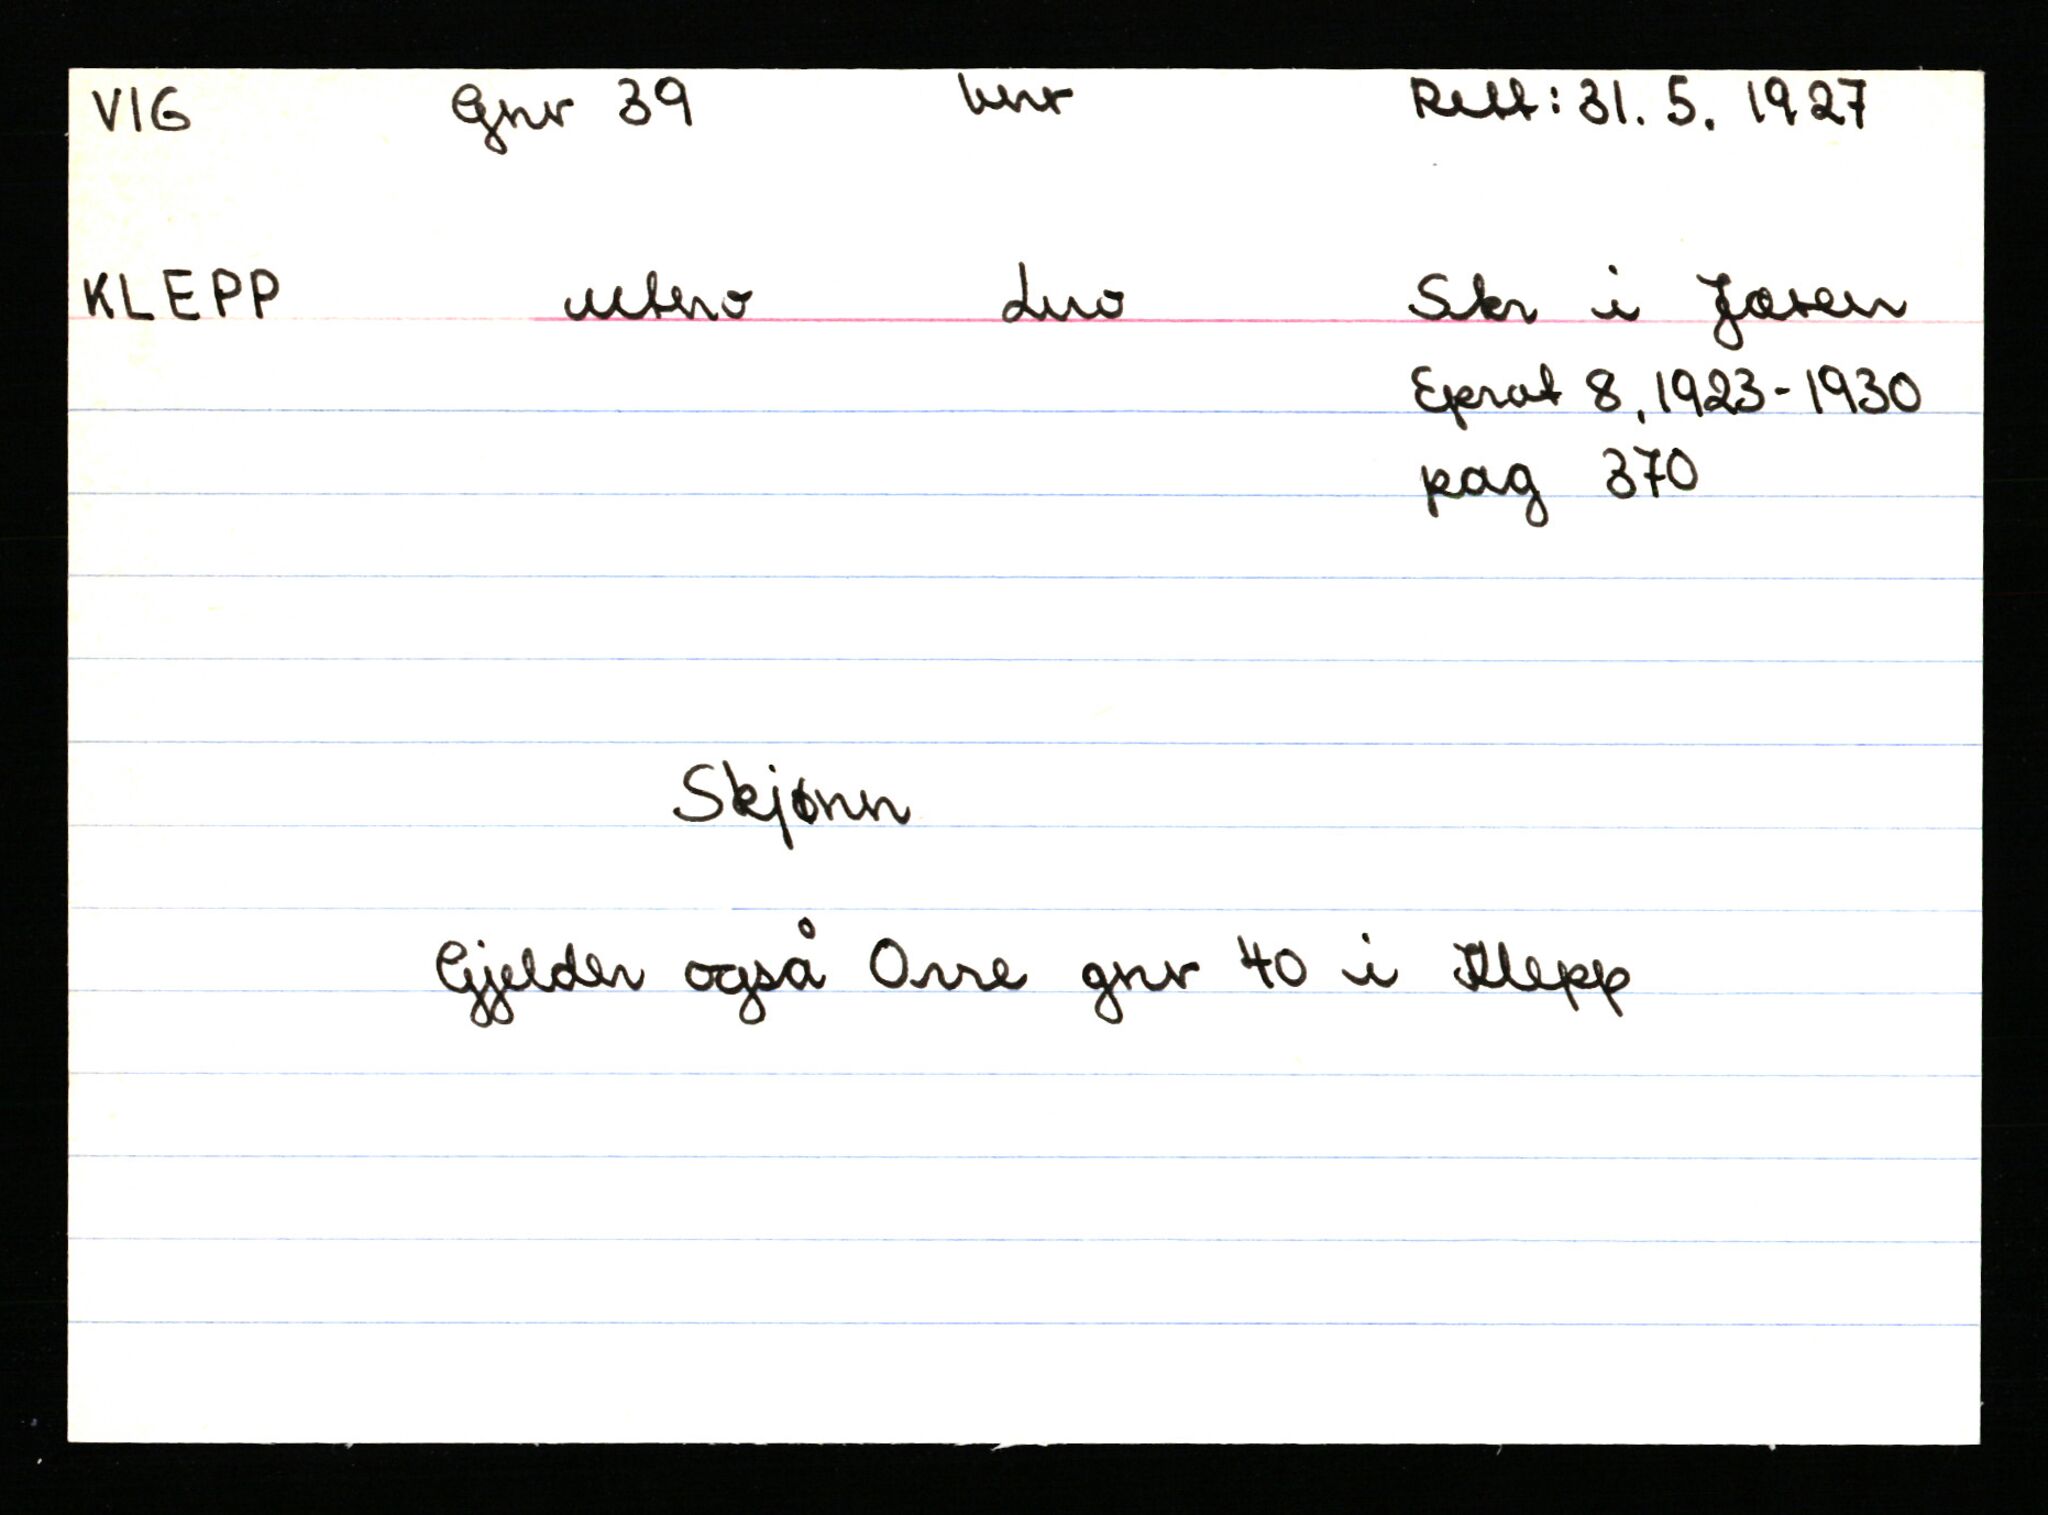 VIG Gnr 39 bnr Rett: 31. 5. 1927
KLEPP mtrno Lno Skr i Jæren
Eprot 8, 1923-1930
pag 370
Skjønn
Gjelder også Orre gnr 40 i Klepp